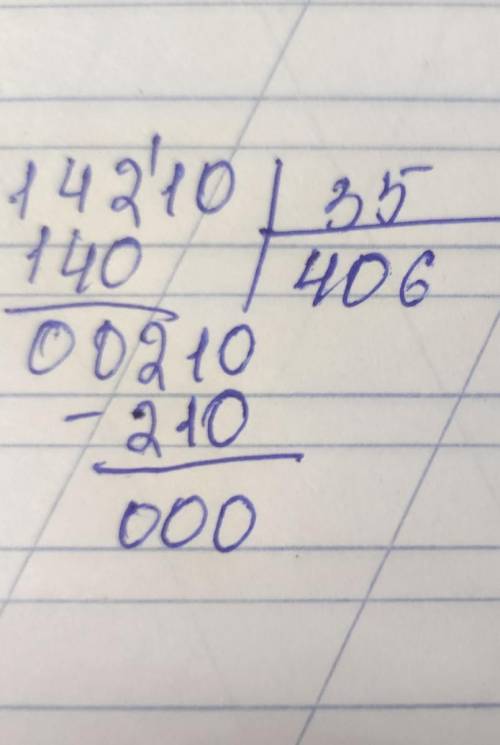 142'10 | 35
140 | 406
00210
- 210
000